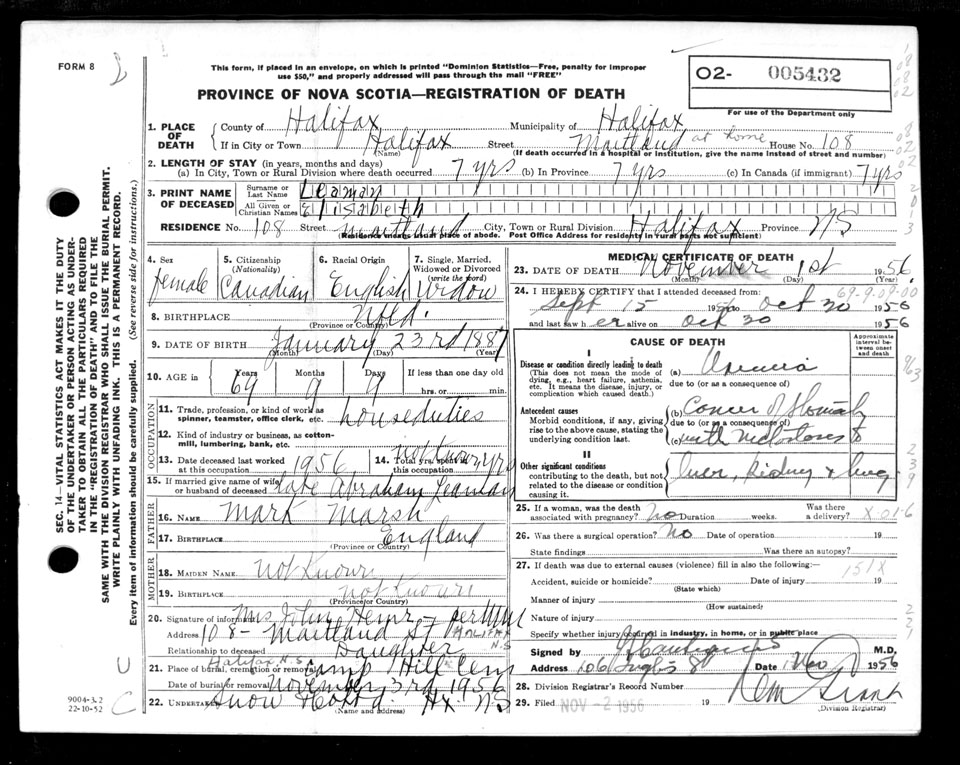 FORM 8
This form, if placed in an envelope, on which is printed "Dominion Statistics—Free, penalty for improper
use $50," and properly addressed will pass through the mail "FREE"
02- 005432
PROVINCE OF NOVA SCOTIA—REGISTRATION OF DEATH
For use of the Department only
1. PLACE OF DEATH County of Halifax Municipality of Halifax
If in City or Town Halifax (Name) Street Maitland at home House No. 108
(If death occurred in a hospital or institution, give the name instead of street and number)
2. LENGTH OF STAY (in years, months and days)
(a) In City, Town or Rural Division where death occurred 7 yrs (b) In Province 7 yrs (c) In Canada (if immigrant) 7 yrs
3. PRINT NAME OF DECEASED Surname or Last Name Leaman
All Given or Christian Names Elisabeth
RESIDENCE No. 108 Street Maitland City, Town or Rural Division Halifax Province NS
(Residence means usual place of abode. Post Office Address for residents in rural parts not sufficient)
4. Sex female
5. Citizenship (Nationality) Canadian
6. Racial Origin English
7. Single, Married, Widowed or Divorced (write the word) Widow
8. BIRTHPLACE Nfld. (Province or Country)
9. DATE OF BIRTH January 23rd 1887 (Month) (Day) (Year)
10. AGE in Years 69 Months 9 Days 9 If less than one day old hrs. or min.
OCCUPATION
11. Trade, profession, or kind of work as spinner, teamster, office clerk, etc. houseduties
12. Kind of industry or business, as cotton-mill, lumbering, bank, etc.
13. Date deceased last worked at this occupation 1956 14. Total yrs. spent in this occupation Not Known yrs
15. If married give name of wife or husband of deceased late Abraham Leaman
FATHER
16. NAME Mark Marsh
17. BIRTHPLACE England (Province or Country)
MOTHER
18. MAIDEN NAME Not Known
19. BIRTHPLACE Not Known (Province or Country)
20. Signature of informant Mrs John Henr
Address 108- Maitland St HALIFAX N.S
Relationship to deceased Daughter
21. Place of burial, cremation or removal Halifax N.S. Camp Hill Cem
Date of burial or removal November 3rd 1956
22. UNDERTAKER Snow Co Ltd. Hx. NS
(Name and address)
MEDICAL CERTIFICATE OF DEATH
23. DATE OF DEATH November 1st 1956
(Month) (Day) (Year)
24. I HEREBY CERTIFY that I attended deceased from:
Sept 15 1956 to Oct 30 1956
and last saw her alive on Oct 30 1956
69-9-09-00
CAUSE OF DEATH
Approximate interval between onset and death
I
Disease or condition directly leading to death
(This does not mean the mode of dying, e.g., heart failure, asthenia, etc. It means the disease, injury, or complication which caused death.)
(a) Uremia
due to (or as a consequence of)
Antecedent causes
Morbid conditions, if any, giving rise to the above cause, stating the underlying condition last.
(b) Cancer of Stomach
due to (or as a consequence of)
(c) with metastases to
II
Other significant conditions
contributing to the death, but not related to the disease or condition causing it.
liver, kidney & lung
25. If a woman, was the death associated with pregnancy? no Duration weeks. Was there a delivery? X 01-6
26. Was there a surgical operation? No Date of operation 19
State findings Was there an autopsy?
27. If death was due to external causes (violence) fill in also the following:
151X
Accident, suicide or homicide? Date of injury 19
(State which)
Manner of injury
(How sustained)
Nature of injury
Specify whether injury occurred in industry, in home, or in public place
Signed by M.D.
Address 106 Date 1 Nov 1956
28. Division Registrar's Record Number
29. Filed NOV - 2 1956 19
(Division Registrar)
SEC. 14—VITAL STATISTICS ACT MAKES IT THE DUTY
OF THE UNDERTAKER OR PERSON ACTING AS UNDER-
TAKER TO OBTAIN ALL THE PARTICULARS REQUIRED
IN THE "REGISTRATION OF DEATH" AND TO FILE THE
SAME WITH THE DIVISION REGISTRAR WHO SHALL ISSUE THE BURIAL PERMIT.
WRITE PLAINLY WITH UNFADING INK. THIS IS A PERMANENT RECORD.
Every item of information should be carefully supplied. (See reverse side for instructions.)
U
C
9004-3.2
22-10-52